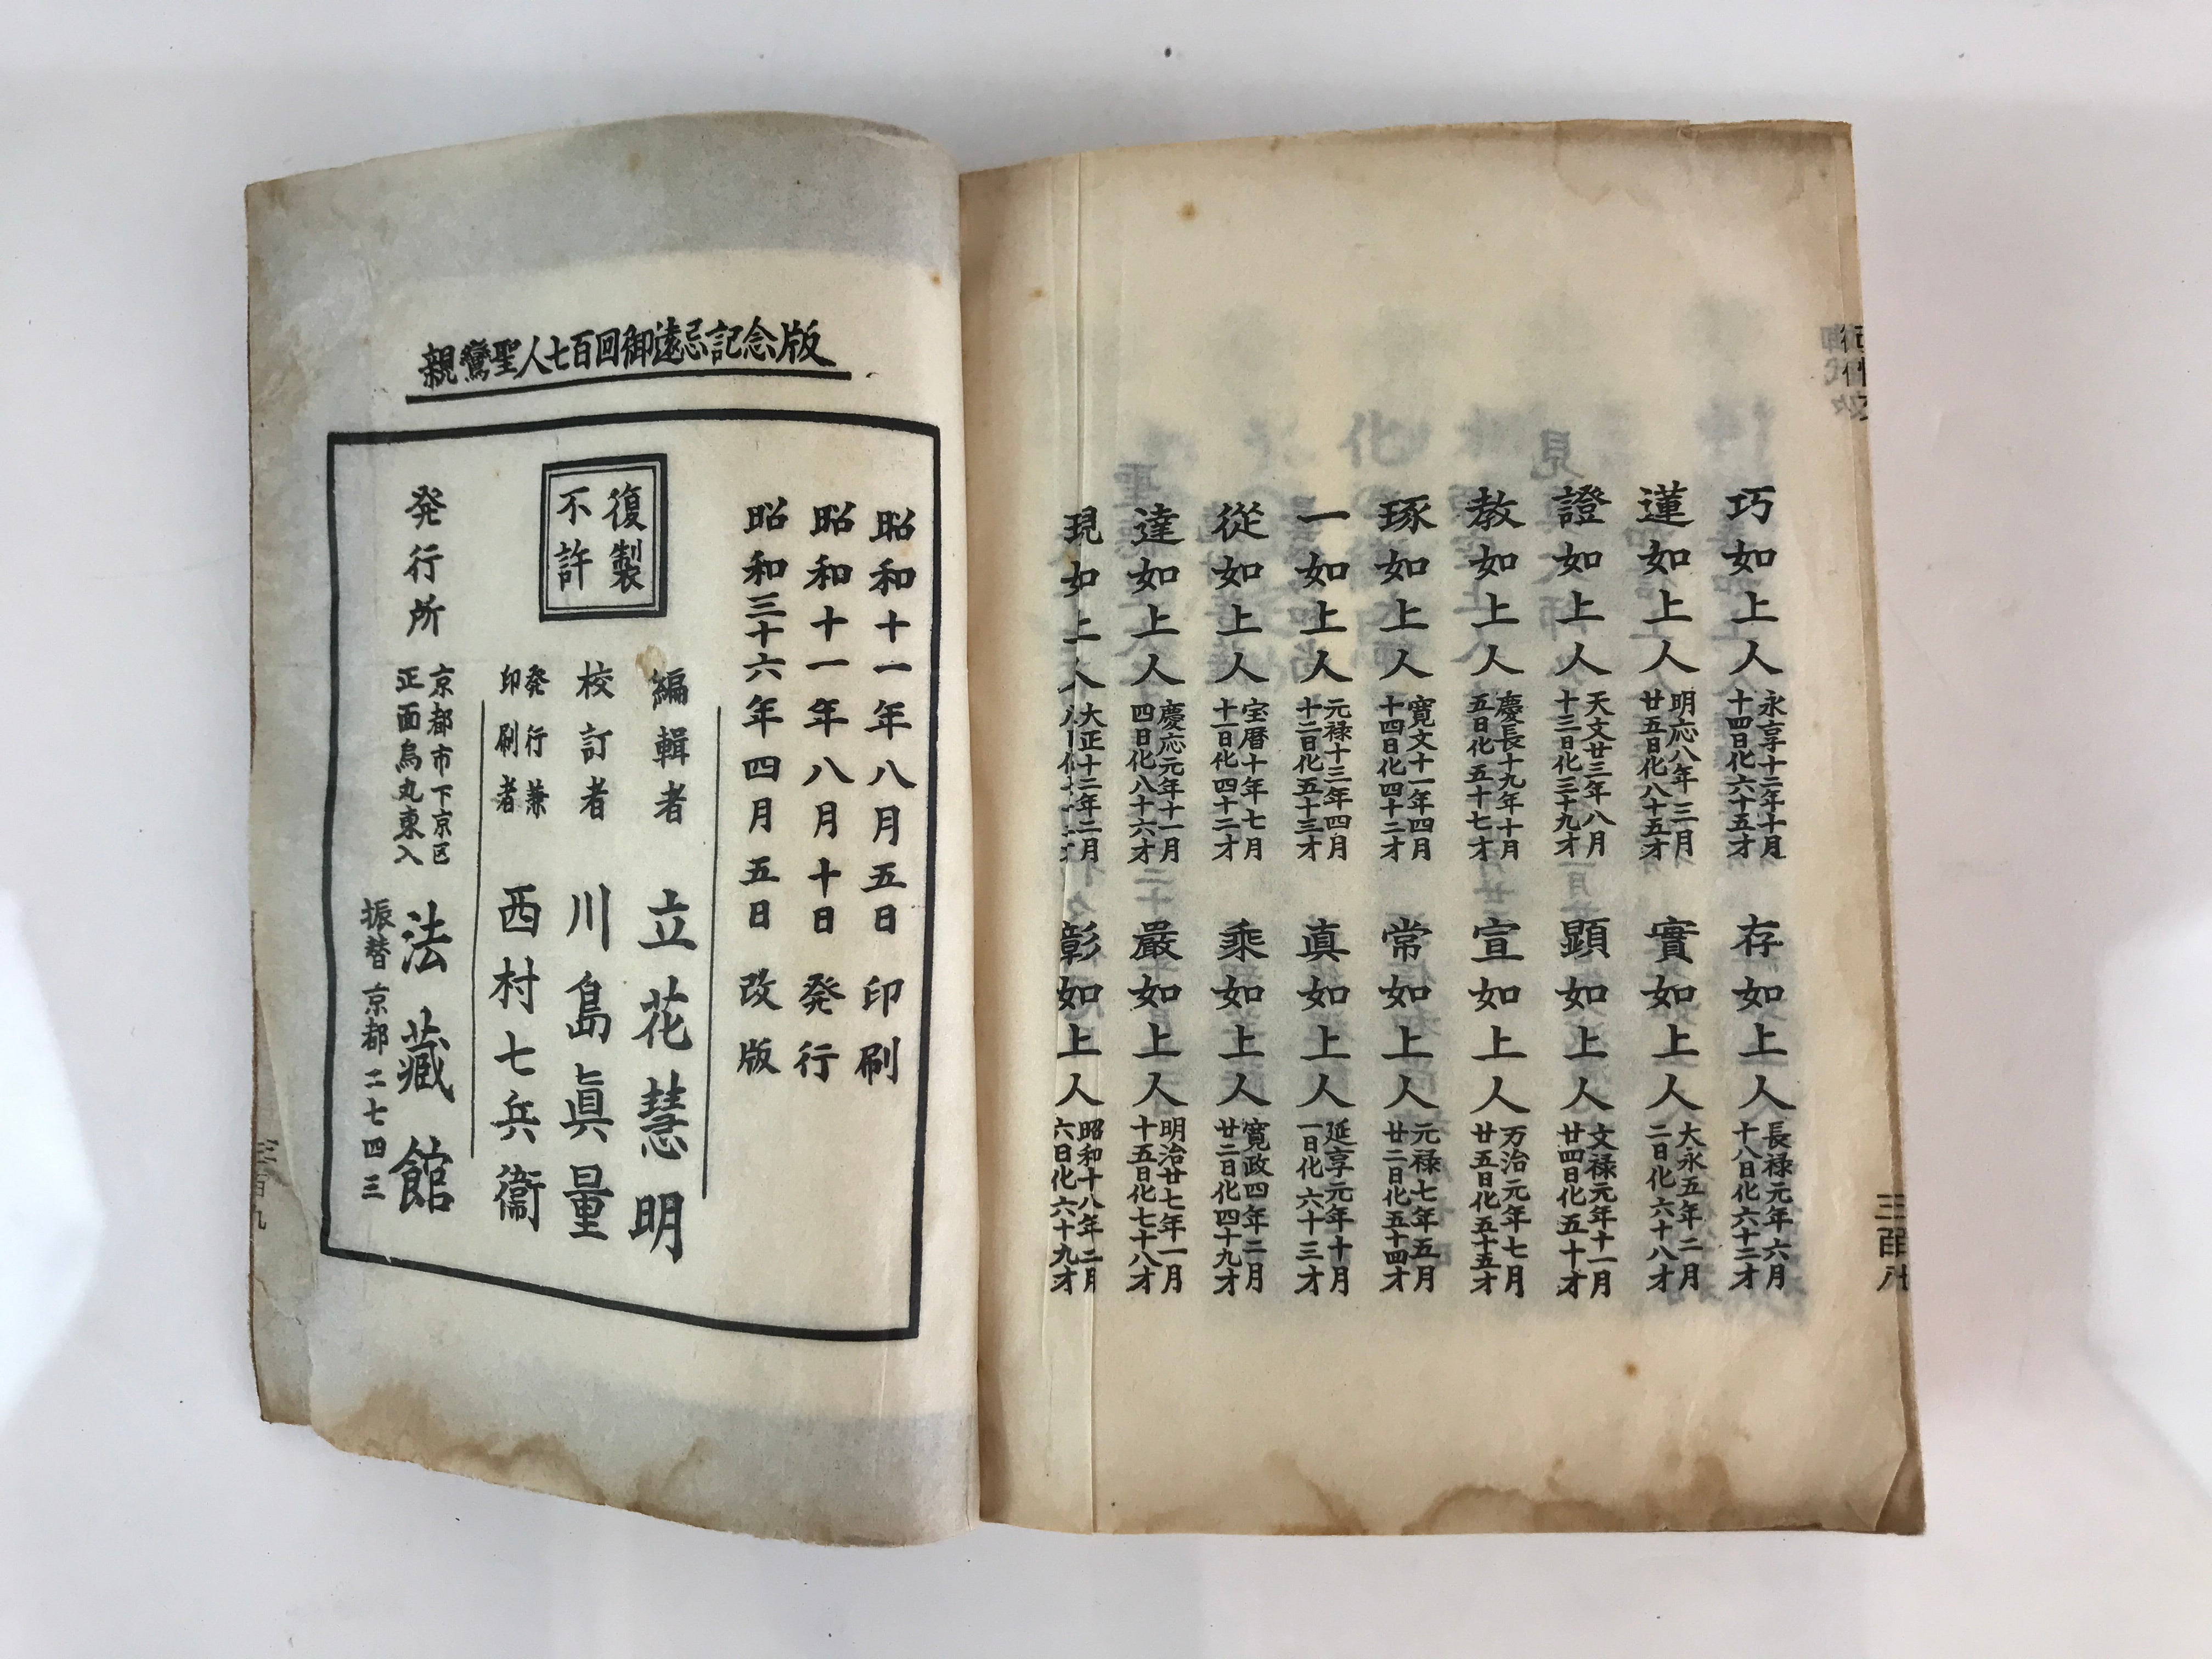 巧如上人 永享十二年十月十四日化六十五才
存如上人 長禄元年六月十八日化六十二才
蓮如上人 明応八年三月廿五日化八十五才
實如上人 大永五年二月二日化六十八才
證如上人 天文廿三年八月十三日化三十九才
顕如上人 文禄元年十一月廿四日化五十才
教如上人 慶長十九年十月五日化五十七才
宣如上人 万治元年七月廿五日化五十五才
琢如上人 寛文十一年四月十四日化四十二才
常如上人 元禄七年五月廿二日化五十四才
一如上人 元禄十三年四月十二日化五十三才
真如上人 延享元年十月一日化六十三才
從如上人 宝暦十年七月十一日化四十二才
乗如上人 寛政四年二月廿二日化四十九才
達如上人 慶応元年十一月四日化八十六才
嚴如上人 明治廿七年一月十五日化七十八才
現如上人 大正十二年二月
彰如上人 昭和十八年二月六日化六十九才
三百八
親鸞聖人七百回御遠忌記念版
昭和十一年八月五日 印刷
昭和十一年八月十日 発行
昭和三十六年四月五日 改版
復製
不許
編輯者 立花慧明
校訂者 川島眞量
発行兼
印刷者 西村七兵衞
発行所 京都市下京区
正面烏丸東入 法藏館
振替京都二七四三